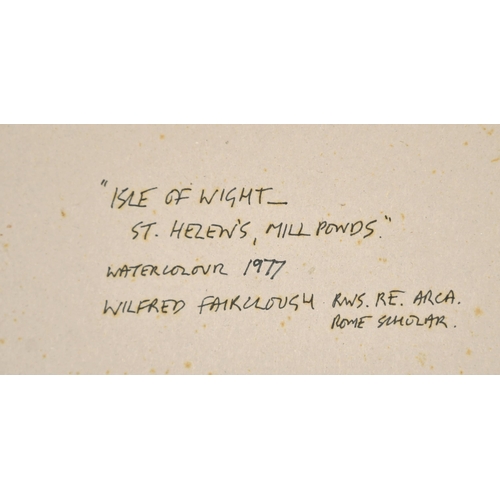 "ISLE OF WIGHT—
ST. HELEN'S, MILL PONDS."
WATERCOLOUR 1977
WILFRED FAIRCLOUGH RWS. RE. ARCA.
ROME SCHOLAR.